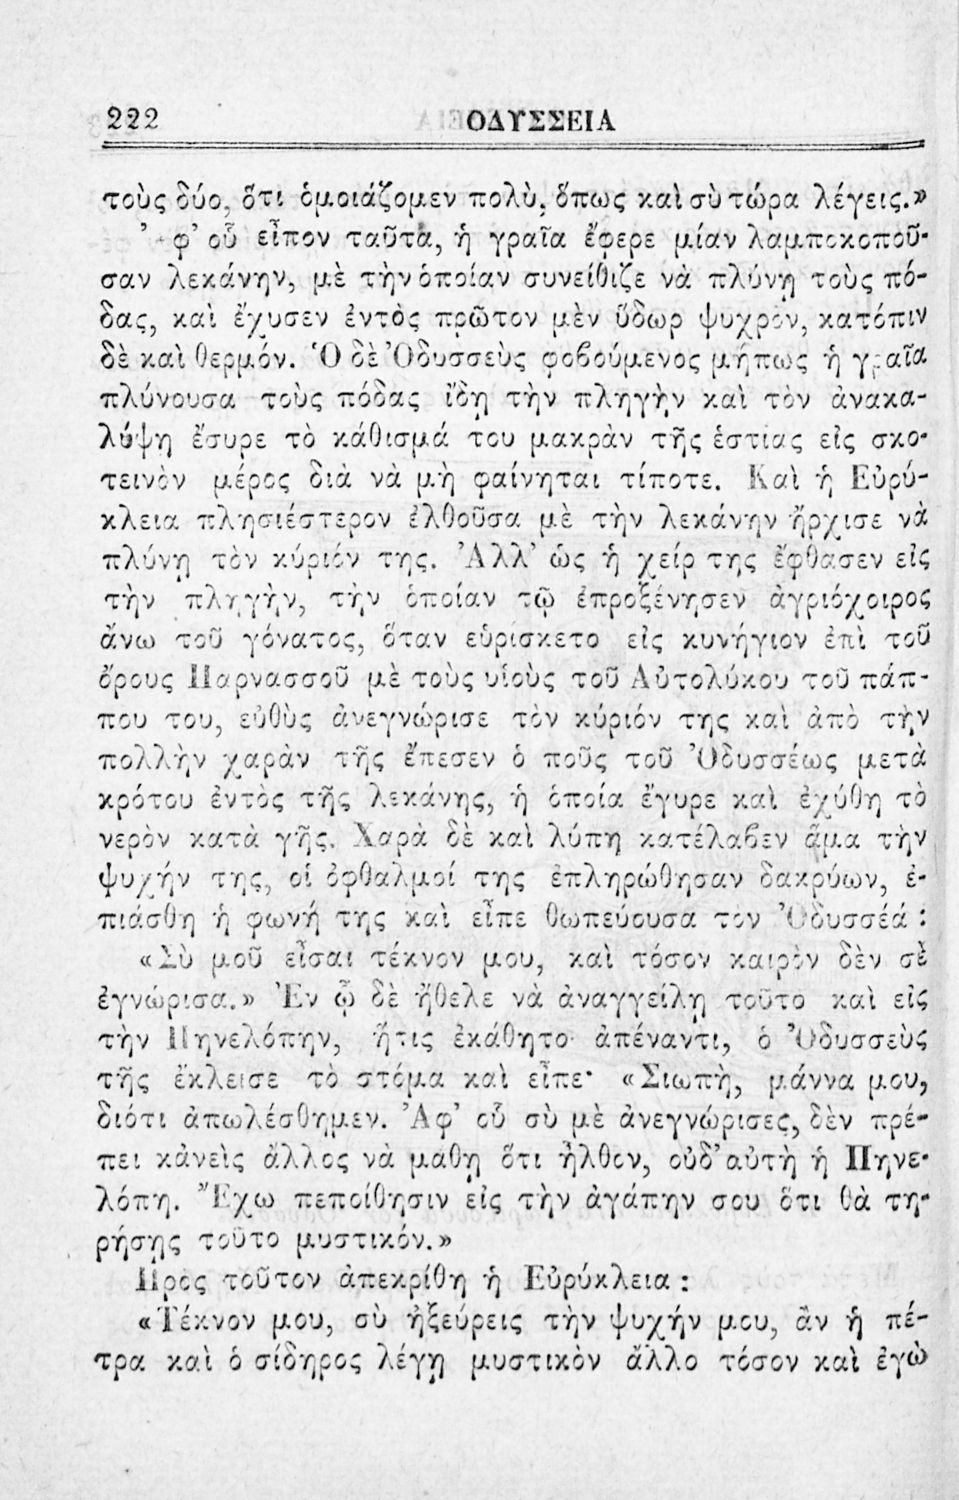 222 ΟΔΥΣΣΕΙΑ
τοὺς δύο, ὅτι ὁμοιάζομεν πολύ, ὅπως καὶ σὺ τώρα λέγεις.»
Ἀφ’ οὗ εἶπον ταῦτα, ἡ γραῖα ἔφερε μίαν λαμποκοποῦ-
σαν λεκάνην, μὲ τὴν ὁποίαν συνείθιζε νὰ πλύνῃ τοὺς πό-
δας, καὶ ἔχυσεν ἐντὸς πρῶτον μὲν ὕδωρ ψυχρὸν, κατόπιν
δὲ καὶ θερμόν. Ὁ δὲ Ὀδυσσεὺς φοβούμενος μήπως ἡ γραῖα
πλύνουσα τοὺς πόδας ἴδῃ τὴν πληγὴν καὶ τὸν ἀνακα-
λύψῃ ἔσυρε τὸ κάθισμά του μακρὰν τῆς ἑστίας εἰς σκο-
τεινὸν μέρος διὰ νὰ μὴ φαίνηται τίποτε. Καὶ ἡ Εὐρύ-
κλεια πλησιέστερον ἐλθοῦσα μὲ τὴν λεκάνην ἤρχισε νὰ
πλύνῃ τὸν κύριόν της. Ἀλλ’ ὡς ἡ χείρ της ἔφθασεν εἰς
τὴν πληγὴν, τὴν ὁποίαν τῷ ἐπροξένησεν ἀγριόχοιρος
ἄνω τοῦ γόνατος, ὅταν εὑρίσκετο εἰς κυνήγιον ἐπὶ τοῦ
ὄρους Παρνασσοῦ μὲ τοὺς υἱοὺς τοῦ Αὐτολύκου τοῦ πάπ-
που του, εὐθὺς ἀνεγνώρισε τὸν κύριόν της καὶ ἀπὸ τὴν
πολλὴν χαρὰν τῆς ἔπεσεν ὁ ποῦς τοῦ Ὀδυσσέως μετὰ
κρότου ἐντὸς τῆς λεκάνης, ἡ ὁποία ἔγυρε καὶ ἐχύθη τὸ
νερὸν κατὰ γῆς. Χαρὰ δὲ καὶ λύπη κατέλαβεν ἅμα τὴν
ψυχήν της, οἱ ὀφθαλμοί της ἐπληρώθησαν δακρύων, ἐ-
πιάσθη ἡ φωνή της καὶ εἶπε θωπεύουσα τὸν Ὀδυσσέα :
«Σὺ μοῦ εἶσαι τέκνον μου, καὶ τόσον καιρὸν δὲν σὲ
ἐγνώρισα.» Ἐν ᾧ δὲ ἤθελε νὰ ἀναγγείλῃ τοῦτο καὶ εἰς
τὴν Πηνελόπην, ἥτις ἐκάθητο ἀπέναντι, ὁ Ὀδυσσεὺς
τῆς ἔκλεισε τὸ στόμα καὶ εἶπε· «Σιωπὴ, μάννα μου,
διότι ἀπωλέσθημεν. Ἀφ’ οὗ σὺ μὲ ἀνεγνώρισες, δὲν πρέ-
πει κἀνεὶς ἄλλος νὰ μάθῃ ὅτι ἦλθον, οὐδ’ αὐτὴ ἡ Πηνε-
λόπη. Ἔχω πεποίθησιν εἰς τὴν ἀγάπην σου ὅτι θὰ τη-
ρήσῃς τοῦτο μυστικόν.»
Πρὸς τοῦτον ἀπεκρίθη ἡ Εὐρύκλεια :
«Τέκνον μου, σὺ ἠξεύρεις τὴν ψυχήν μου, ἂν ἡ πέ-
τρα καὶ ὁ σίδηρος λέγῃ μυστικὸν ἄλλο τόσον καὶ ἐγὼ